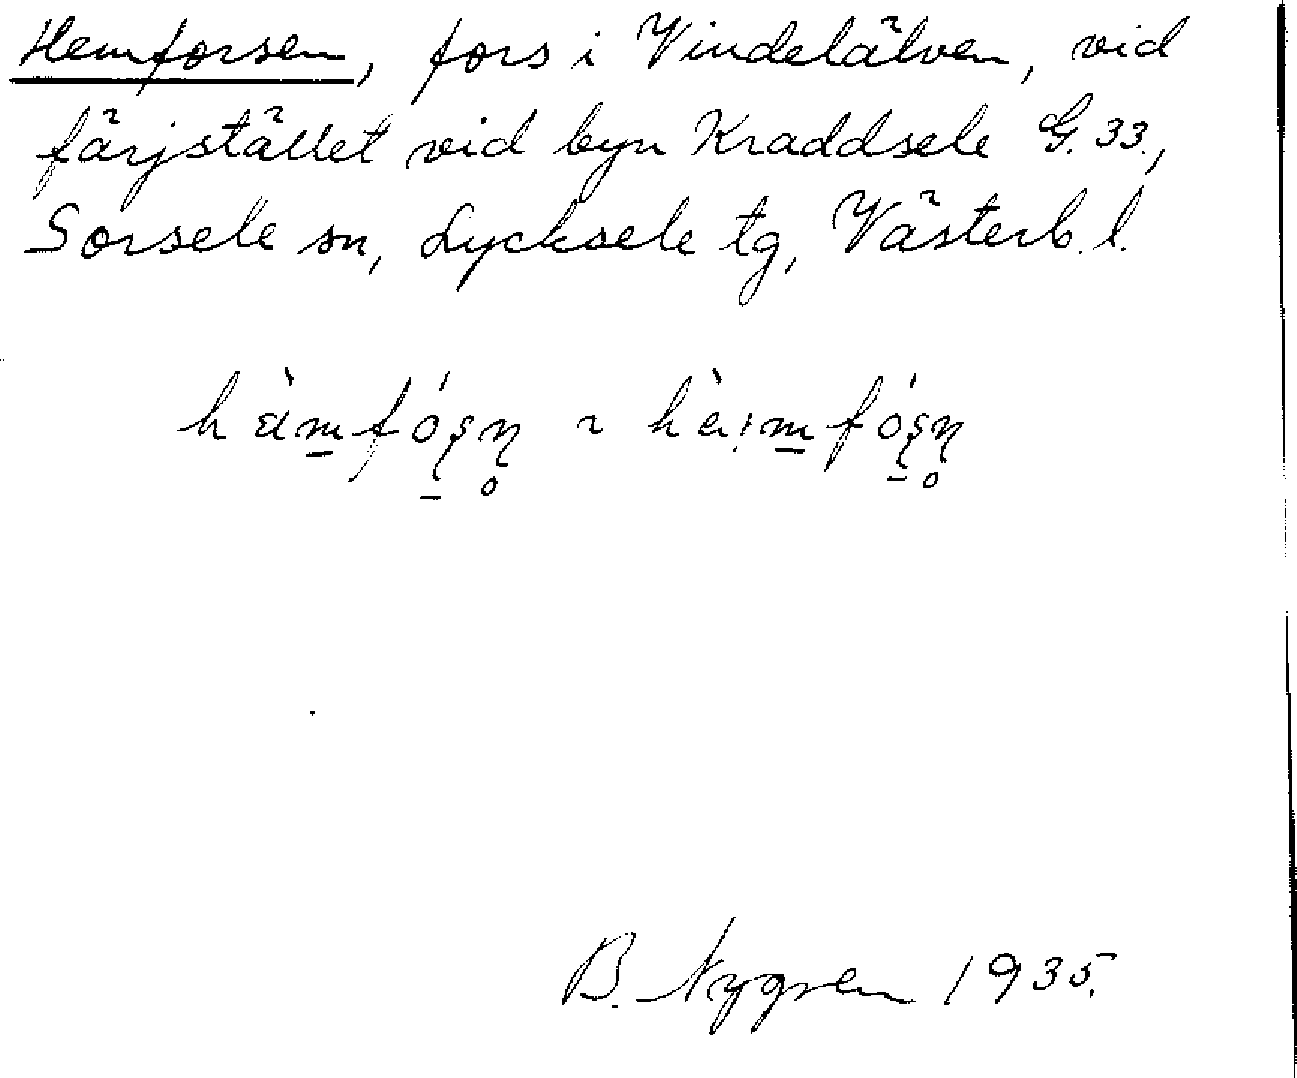 Hemforsen, fors i Vindelälven, vid
färjstället vid byn Kraddsele G. 33.,
Sorsele sn, Lycksele tg, Västerb. l.
B. Nygren 1935.